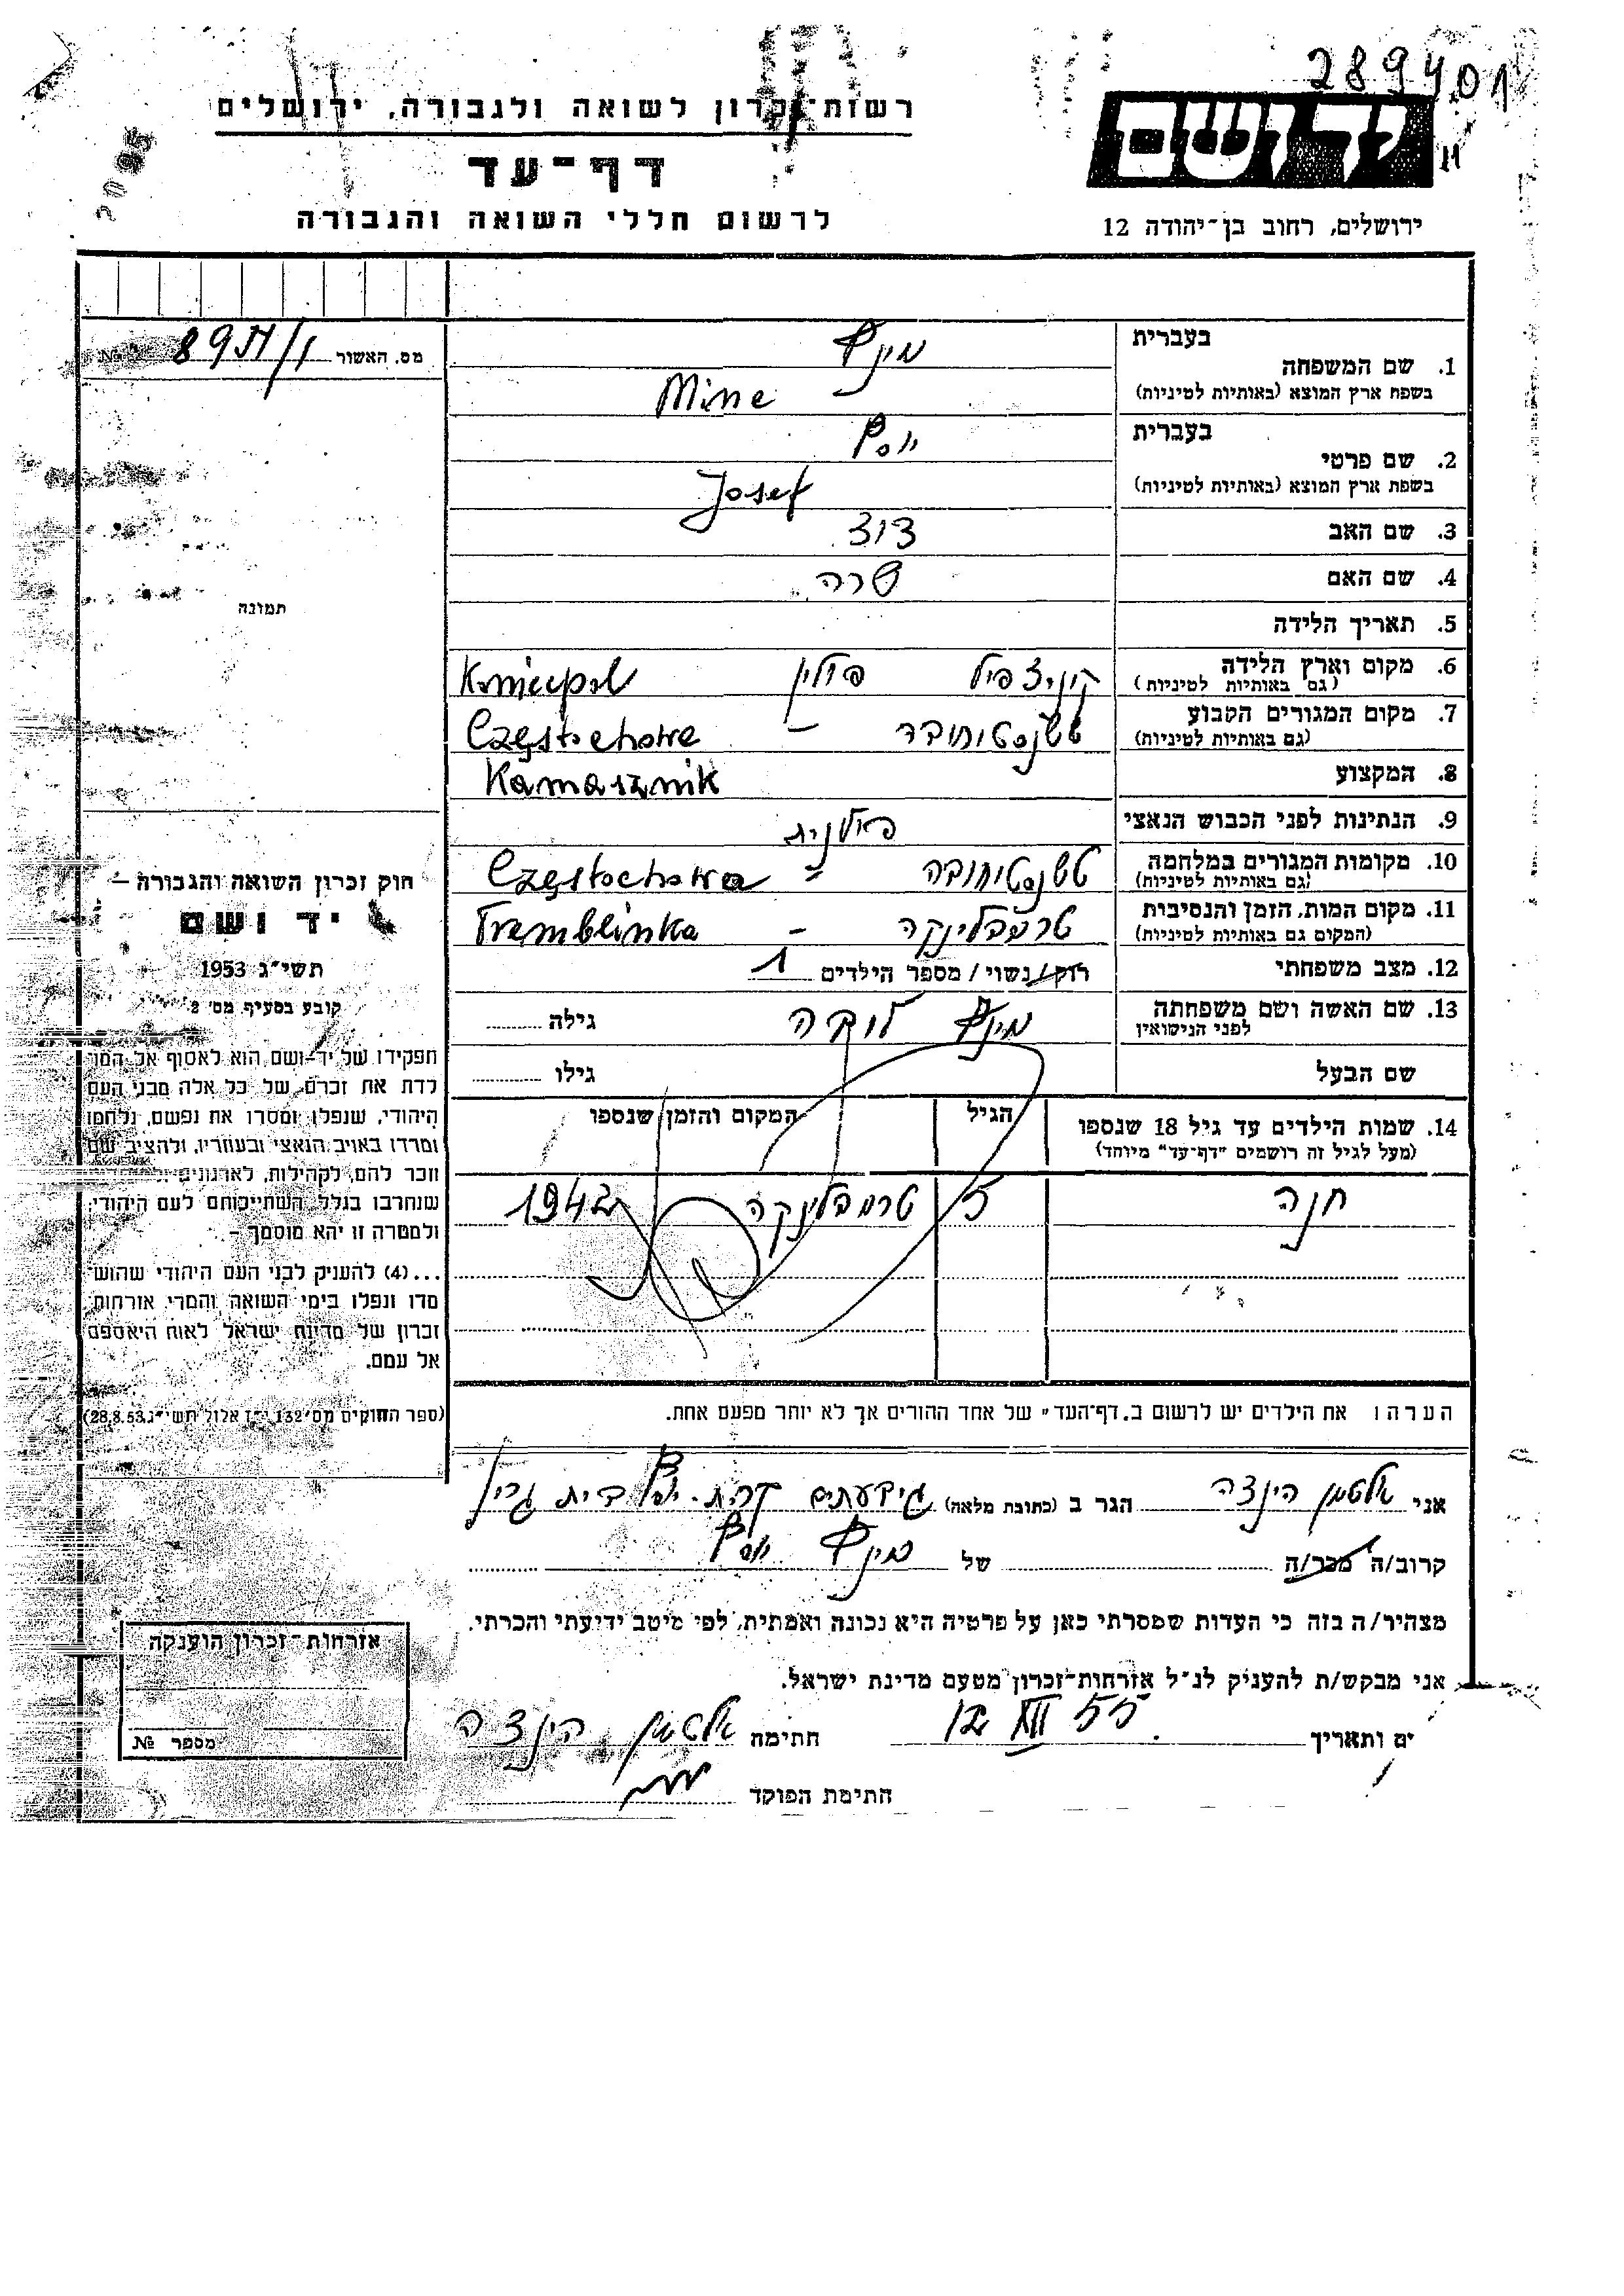 289401
רשות-זכרון לשואה ולגבורה, ירושלים
יד ושם
דף-עד
לרשום חללי השואה והגבורה
ירושלים, רחוב בן-יהודה 12
מס. האשור
בעברית
1. שם המשפחה
בשפת ארץ המוצא (באותיות לטיניות)
Mine
בעברית יוסף
2. שם פרטי
בשפת ארץ המוצא (באותיות לטיניות)
Josef
3. שם האב דוד
4. שם האם שרה
תמונה
5. תאריך הלידה
6. מקום וארץ הלידה פולין Koniecpol
(גם באותיות לטיניות)
7. מקום המגורים הקבוע טשנסטוחובה – Częstochowa
(גם באותיות לטיניות)
8. המקצוע Kamasznik
9. הנתינות לפני הכבוש הנאצי פולנית
10. מקומות המגורים במלחמה טשנסטוחובה – Częstochowa
(גם באותיות לטיניות)
11. מקום המות, הזמן והנסיבות טרמבלינקה – Tremblinka
(המקום גם באותיות לטיניות)
12. מצב משפחתי רוק/נשוי/ מספר הילדים 1
13. שם האשה ושם משפחתה
לפני הנישואין
גילה
שם הבעל גילו
14. שמות הילדים עד גיל 18 שנספו הגיל המקום והזמן שנספו
(מעל לגיל זה רושמים "דף-עד" מיוחד)
חנה 5 טרמבלינקה 1942
הערה: את הילדים יש לרשום ב"דף-העד" של אחד ההורים אך לא יותר מפעם אחת.
חוק זכרון השואה והגבורה –
יד ושם
תשי"ג 1953
קובע בסעיף מס' 2
תפקידו של יד-ושם הוא לאסוף אל המו
לדת את זכרם של כל אלה מבני העם
היהודי, שנפלו ומסרו את נפשם, נלחמו
ומרדו באויב הנאצי ובעוזריו, ולהציב שם
וזכר להם, לקהילות, לארגונים
שנחרבו בגלל השתייכותם לעם היהודי,
ולמטרה זו יהא מוסמך –
...(4) להעניק לבני העם היהודי שהוש
מדו ונפלו בימי השואה והמרי אזרחות
זכרון של מדינת ישראל לאות היאספם
אל עמם.
(ספר החוקים מס' 132, י"ז אלול תשי"ג 28.8.53)
אני אלטמן הינדה הגר ב (כתובת מלאה) גבעתים
קרוב/ה מכר/ה של יוסף
מצהיר/ה בזה כי העדות שמסרתי כאן על פרטיה היא נכונה ואמתית, לפי מיטב ידיעתי והכרתי.
אני מבקש/ת להעניק לנ"ל אזרחות-זכרון מטעם מדינת ישראל.
ים ותאריך 12 XII 55 חתימה אלטמן הינדה
חתימת הפוקד
אזרחות-זכרון הוענקה
מספר №